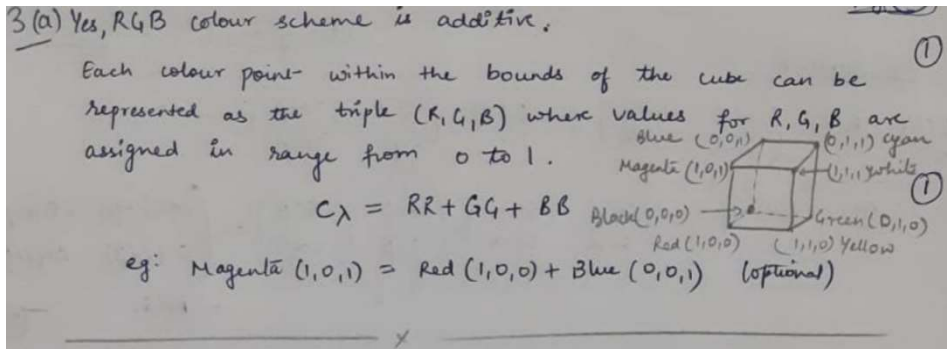 3(a) Yes, RGB colour scheme is additive.
①
Each colour point within the bounds of the cube can be
represented as the triple (R,G,B) where values for R, G, B are
assigned in range from 0 to 1.
Blue (0,0,1)
(0,1,1) Cyan
Magenta (1,0,1)
(1,1,1) White
①
Cλ = RR + GG + BB
Black (0,0,0)
Green (0,1,0)
Red (1,0,0)
(1,1,0) Yellow
eg: Magenta (1,0,1) = Red (1,0,0) + Blue (0,0,1) (optional)
x